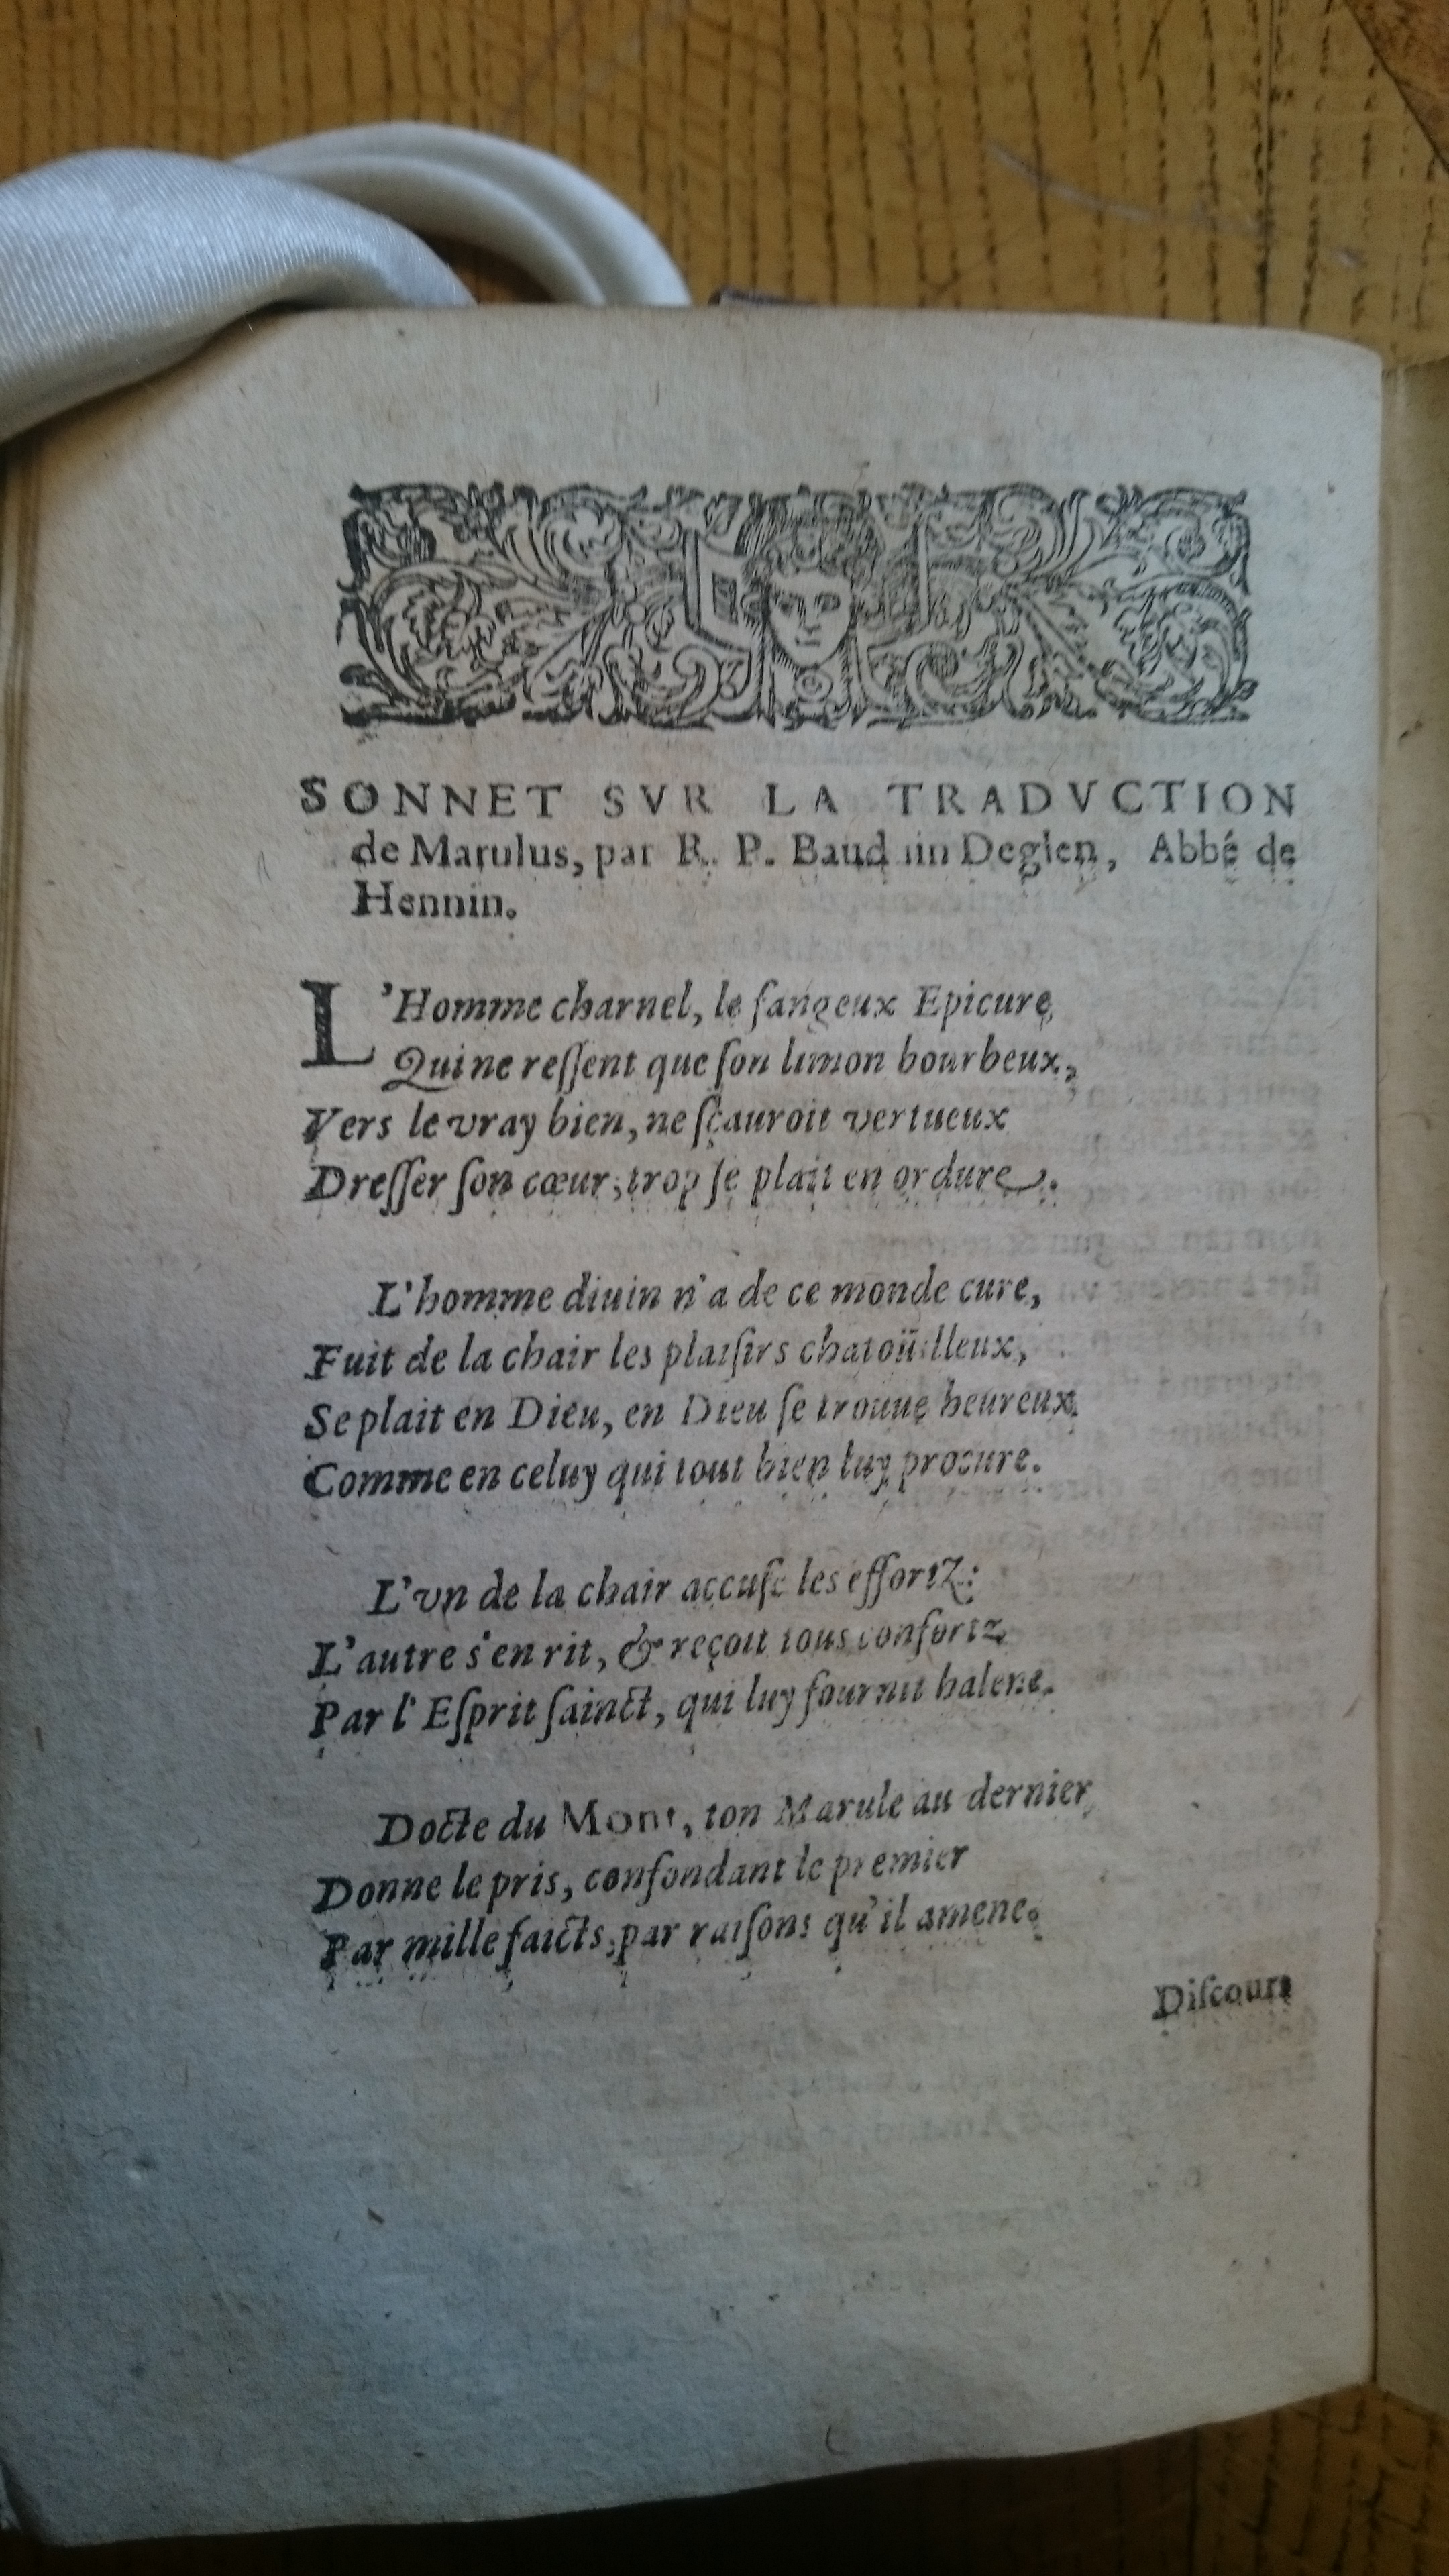 SONNET SVR LA TRADVCTION
de Marulus, par R. P. Baudüin Deglen, Abbé de
Hennin.
L'Homme charnel, le fangeux Epicure,
Qui ne reſſent que ſon limon bourbeux,
Vers le vray bien, ne ſçauroit vertueux
Dreſſer ſon cœur, trop ſe plait en ordure.
L'homme diuin n'a de ce monde cure,
Fuit de la chair les plaiſirs chatoüilleux,
Se plait en Dieu, en Dieu ſe trouue heureux,
Comme en celuy qui tout bien luy procure.
L'vn de la chair accuſe les effortz:
L'autre s'en rit, & reçoit tous confortz
Par l'Eſprit ſainct, qui luy fournit halene.
Docte du Mont, ton Marule au dernier,
Donne le pris, confondant le premier
Par mille faicts, par raiſons qu'il amene.
Diſcours